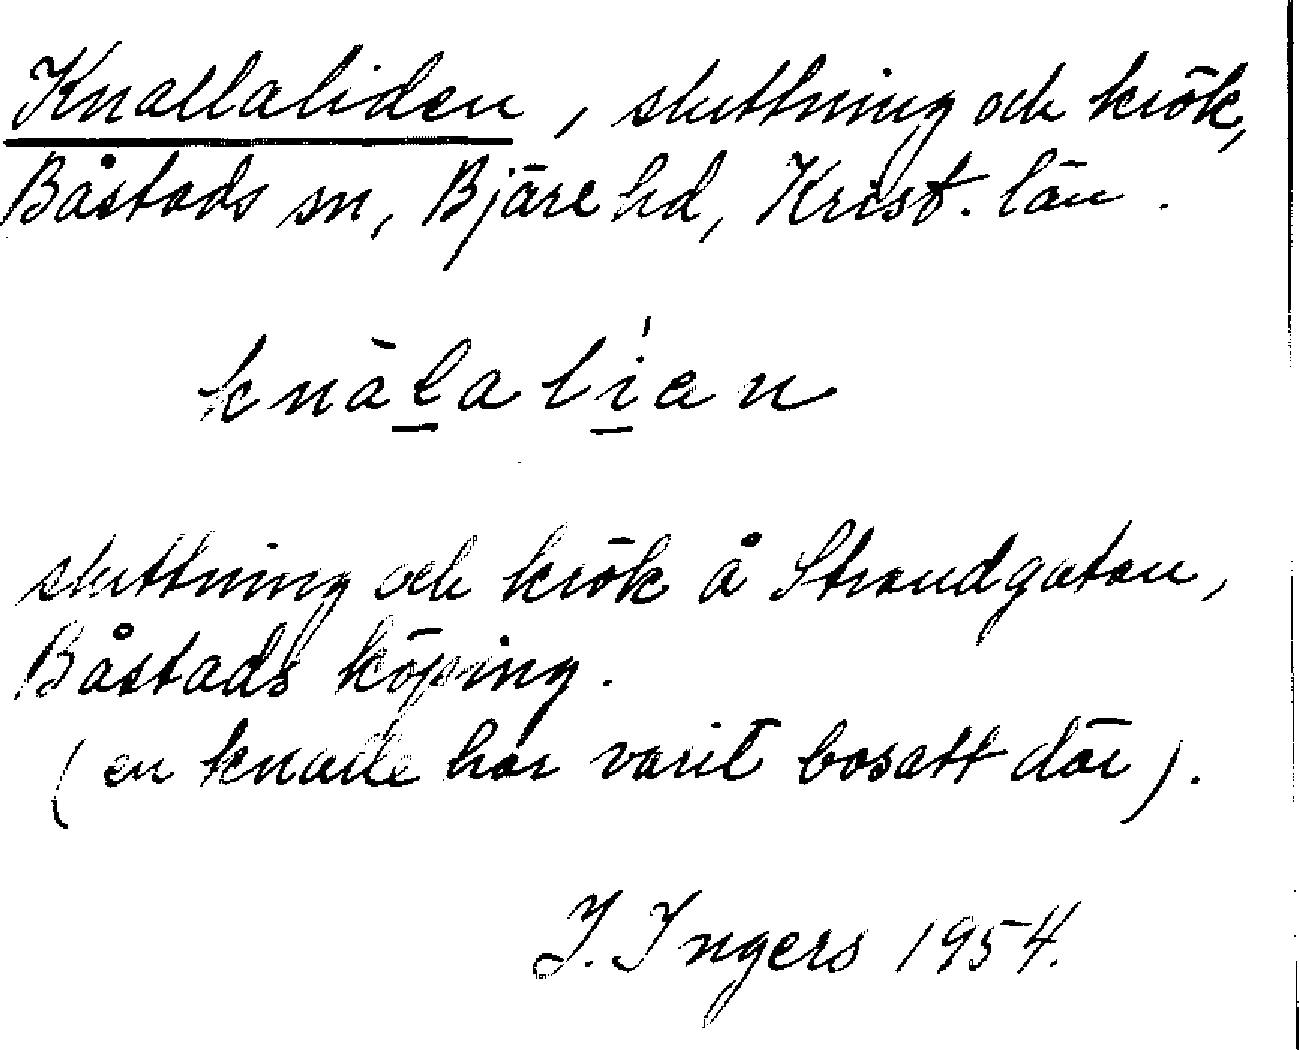 Knallaliden, sluttning och krök,
Båstads sn, Bjäre hd, Krist. län.
knàlalían
sluttning och krök å Strandgatan,
Båstads köping.
(en knalle har varit bosatt där).
I. Ingers 1954.